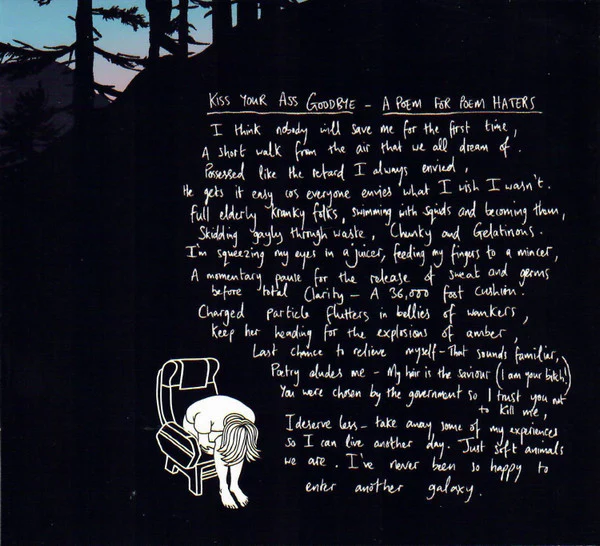 KISS YOUR ASS GOODBYE - A POEM FOR POEM HATERS
I think nobody will save me for the first time,
A short walk from the air that we all dream of.
Possessed like the retard I always envied,
He gets it easy cos everyone envies what I wish I wasn't.
Full elderly kranky folks, swimming with squids and becoming them,
Skidding gayly through waste, Chunky and Gelatinous.
I'm squeezing my eyes in a juicer, feeding my fingers to a mincer,
A momentary pause for the release of sweat and germs
before total Clarity - A 36,000 foot cushion.
Charged particle flutters in bellies of wankers,
Keep her heading for the explosions of amber,
Last chance to relieve myself - That sounds familiar,
Poetry eludes me - My hair is the saviour (I am your bitch!)
You were chosen by the government so I trust you not
to kill me,
I deserve less - take away some of my experiences
so I can live another day. Just soft animals
we are. I've never been so happy to
enter another galaxy.